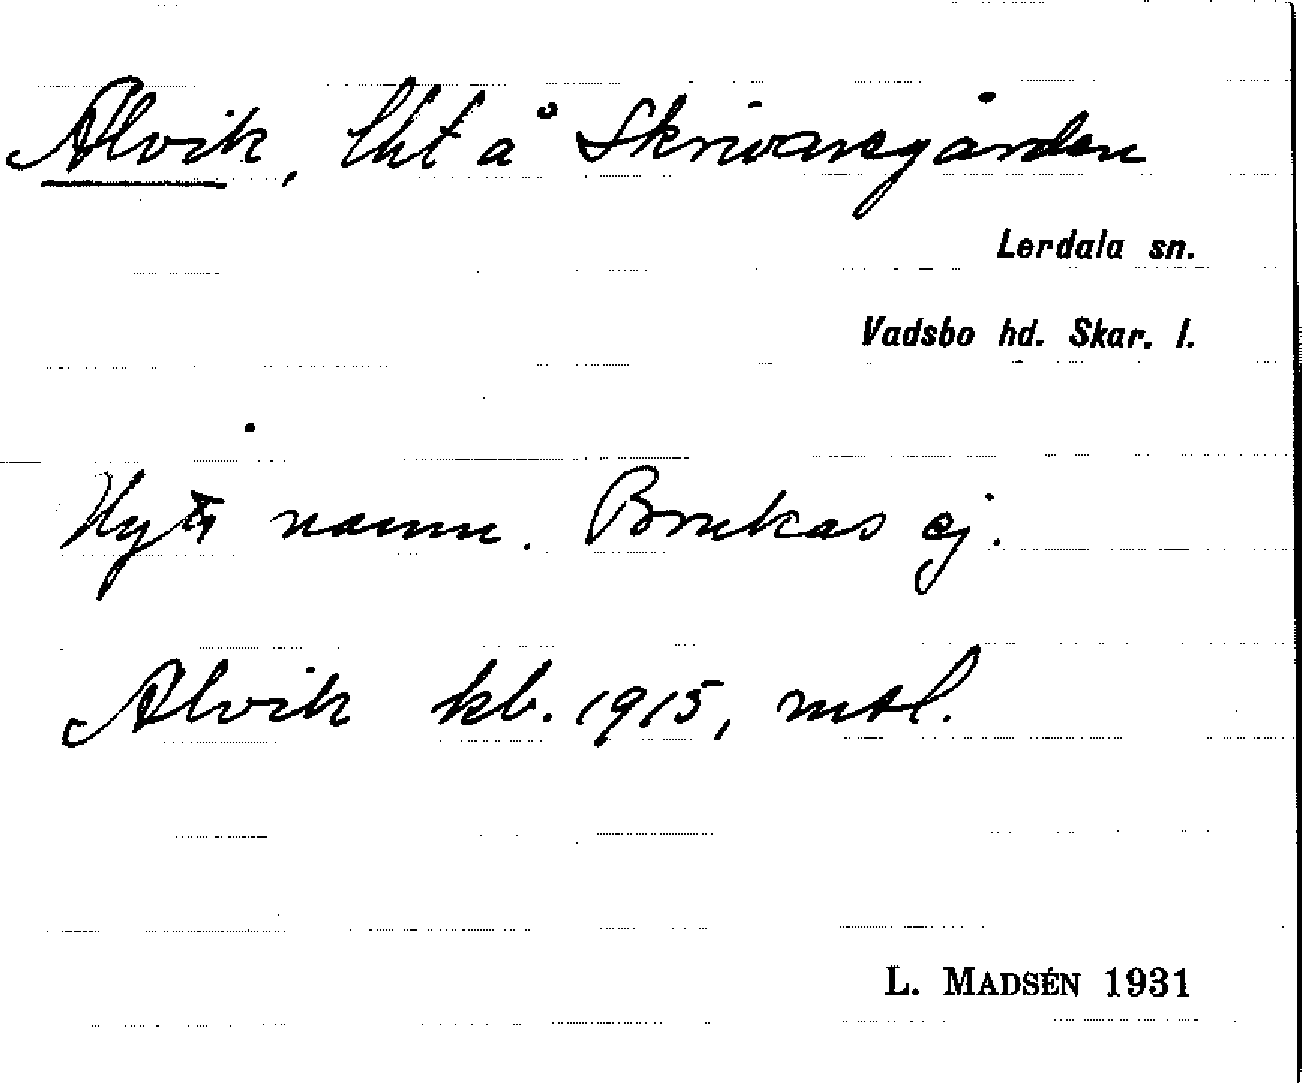 Alvik, lht å Skrivaregården
Lerdala sn.
Vadsbo hd. Skar. l.
Nytt namn. Brukas ej.
Alvik kb. 1915, mtl.
L. MADSÉN 1931